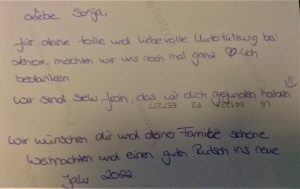 Liebe Sonja,
für deine tolle und liebevolle Unterstützung bei
möchten wir uns noch mal ganz ♡lich
bedanken.
Wir sind sehr froh, das wir dich gefunden haben ☺
Wir wünschen dir und deine Familie schöne
Weihnachten und einen guten Rutsch ins neue
Jahr 2022